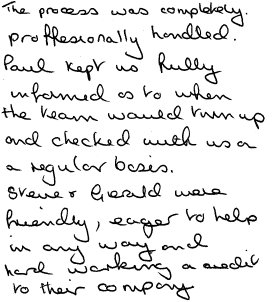 The process was completely.
proffesionally handled.
Paul kept us fully
informed as to when
the team would turn up
and checked with us on
a regular basis.
Steve & Gerald were
friendly, eager to help
in any way and
hard working a credit
to their company